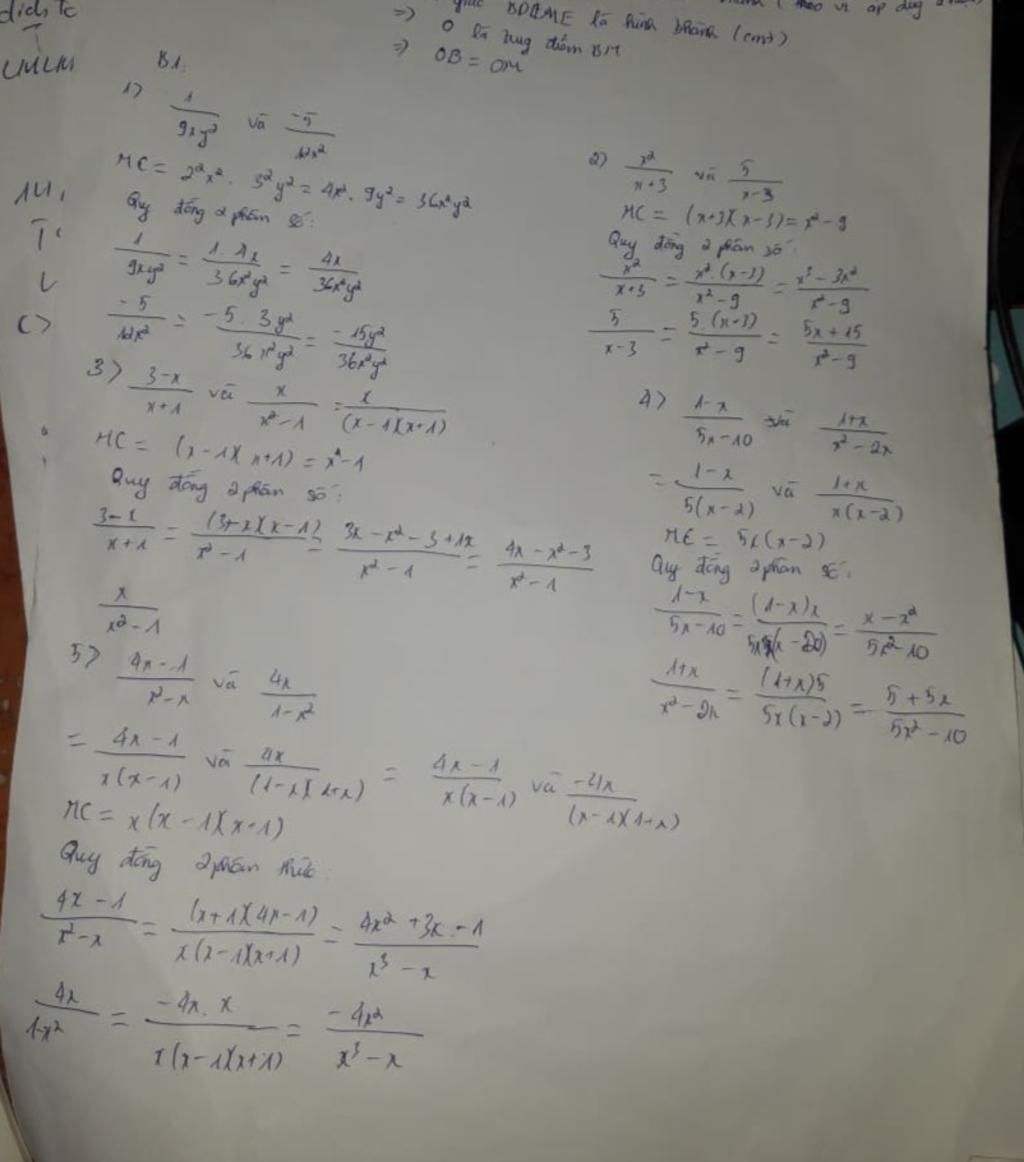 dich
giác BDME là hình bhành (cmt)
=> O là trung điểm BM
=> OB = OM
B1:
1) 1/9xy² và -5/12x²
MC = 2²x² . 3²y² = 4x² . 9y² = 36x²y²
Quy đồng 2 phân số:
1/9xy² = 1.4x/36x²y² = 4x/36x²y²
-5/12x² = -5.3y²/36x²y² = -15y²/36x²y²
2) x²/x+3 và 5/x-3
MC = (x+3)(x-3) = x²-9
Quy đồng 2 phân số:
x²/x+3 = x².(x-3)/x²-9 = x³-3x²/x²-9
5/x-3 = 5.(x+3)/x²-9 = 5x+15/x²-9
3) 3-x/x+1 và x/x²-1 = x/(x-1)(x+1)
MC = (x-1)(x+1) = x²-1
Quy đồng 2 phân số:
3-x/x+1 = (3-x)(x-1)/x²-1 = 3x-x²-3+1x/x²-1 = 4x-x²-3/x²-1
x/x²-1
4) 1-x/5x-10 và 1+x/x²-2x
= 1-x/5(x-2) và 1+x/x(x-2)
MC = 5x(x-2)
Quy đồng 2 phân số:
1-x/5x-10 = (1-x)x = x-x²/5x²-10
1+x/x²-2x = (1+x)5/5x(x-2) = 5+5x/5x²-10
5) 4x-1/x²-x và 4x/1-x²
= 4x-1/x(x-1) và 4x/(1-x)(1+x) = 4x-1/x(x-1) và -4x/(x-1)(1+x)
MC = x(x-1)(x+1)
Quy đồng 2 phân thức:
4x-1/x²-x = (x+1)(4x-1)/x(x-1)(x+1) = 4x²+3x-1/x³-x
4x/1-x² = -4x.x/x(x-1)(x+1) = -4x²/x³-x